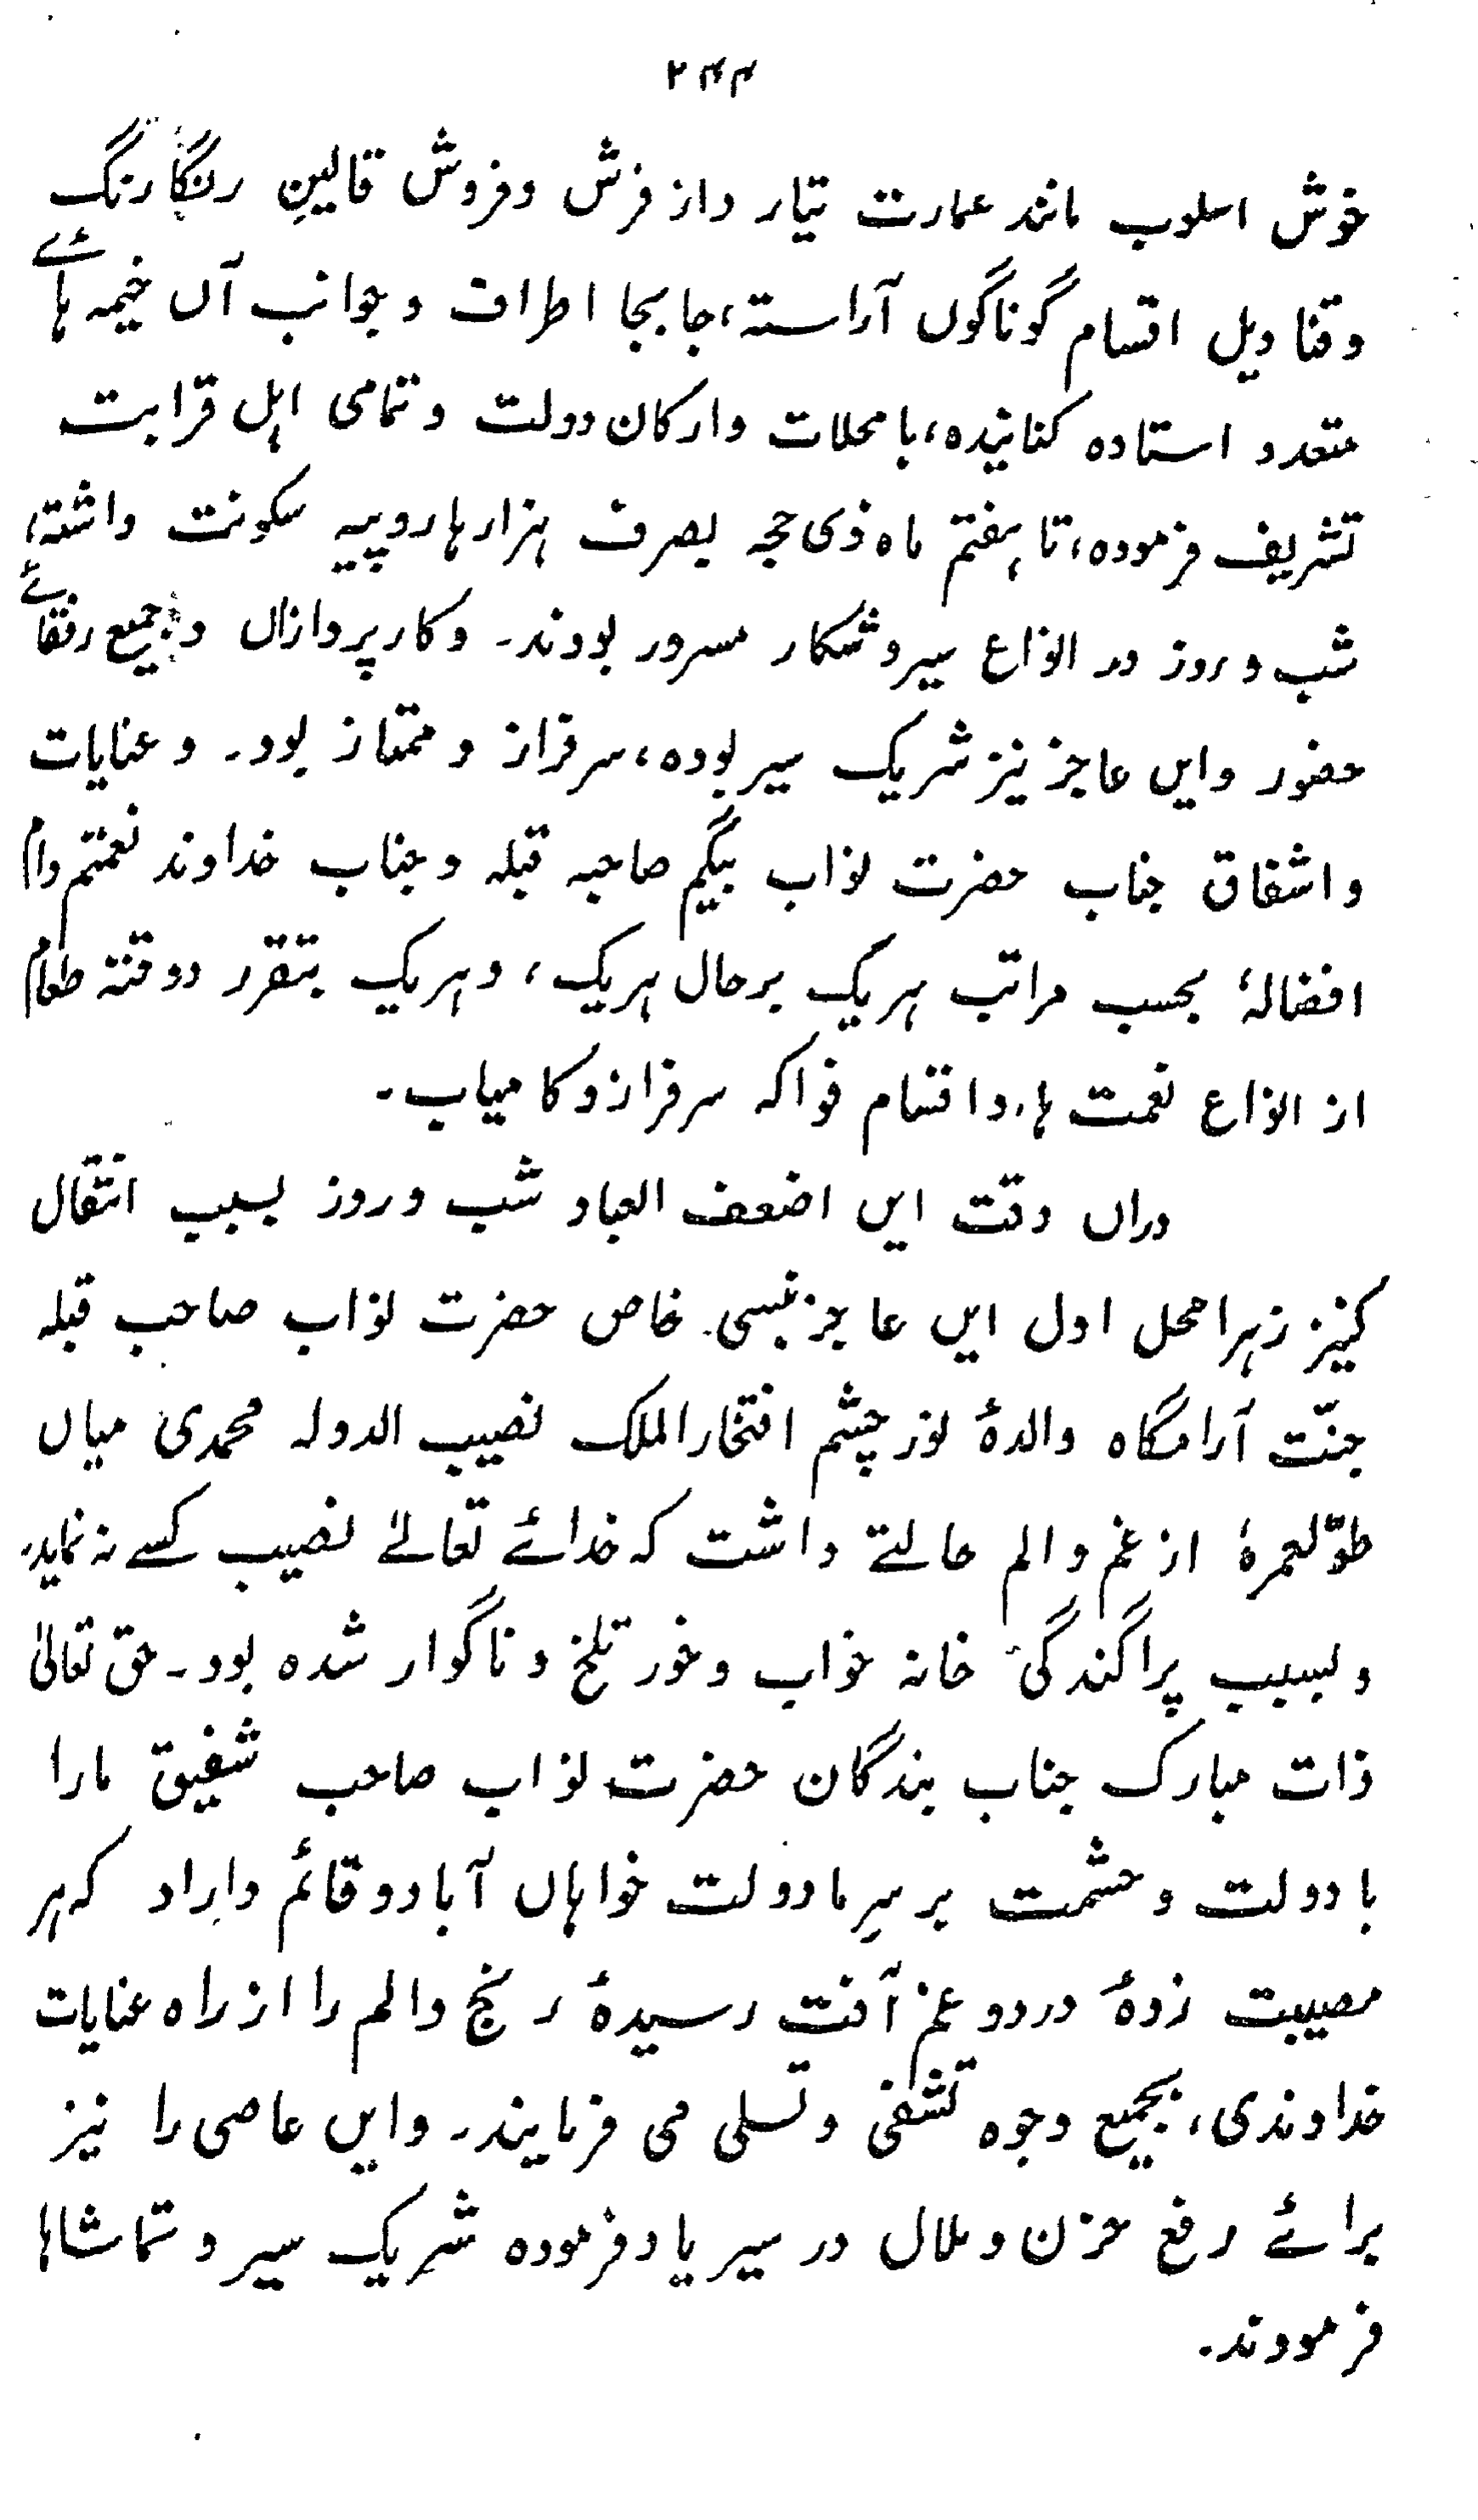 ۲۴۴
خوش اسلوب مانند عمارت تیار واز فرش وفروش قالینِ رنگارنگ
وقنادیل اقسام گوناگوں آراستہ، جابجا اطراف وجوانب آں خیمہ ہائے
متعدد استادہ کنانیدہ، بامحلات وارکان دولت وتمامی اہل قرابت
تشریف فرمودہ، تا ہفتم ماہ ذی حجہ بصرف ہزارہا روپیہ سکونت داشتہ،
شب و روز در انواع سیر وشکار مسرور بودند۔ وکار پردازاں وجمیع رفقائے
حضور وایں عاجز نیز شریک سیر بودہ، سرفراز و ممتاز بود۔ وعنایات
واشفاق جناب حضرت نواب بیگم صاحبہ قبلہ وجناب خداوند نعمتم دام
افضالہٗ بحسب مراتب ہریک برحال ہریک، وہریک بتقرر دو وقتہ طعام
از انواع نعمت ہا، واقسام فواکہ سرفراز وکامیاب۔
دراں وقت ایں اضعف العباد شب وروز بسبب انتقال
کنیز زہرا محل اول ایں عاجز خاص حضرت نواب صاحب قبلہ
جنّت آرامگاہ والدۂ نورچشم افتخارالملک نصیب الدولہ محمدی میاں
طوّلعمرہٗ از غم والم حالتے داشت کہ خدائے تعالےٰ نصیب کسے نہ نماید۔
وبسبب پراگندگیٔ خانہ خواب وخور تلخ و ناگوار شدہ بود۔ حق تعالیٰ
ذات مبارک جناب بندگان حضرت نواب صاحب شفیق مارا
بادولت وحشمت بر سرِما دولت خواہاں آباد و قائم داراد کہ ہر
مصیبت زدۂ درد وغم آفت رسیدۂ رنج والم را از راہ عنایات
خداوندی، بجمیع وجوہ تشفی وتسلی می فرمایند۔ وایں عاصی را نیز
برائے رفع حزن وملال در سیر یاد فرمودہ شریک سیر وتماشاہا
فرمودند۔